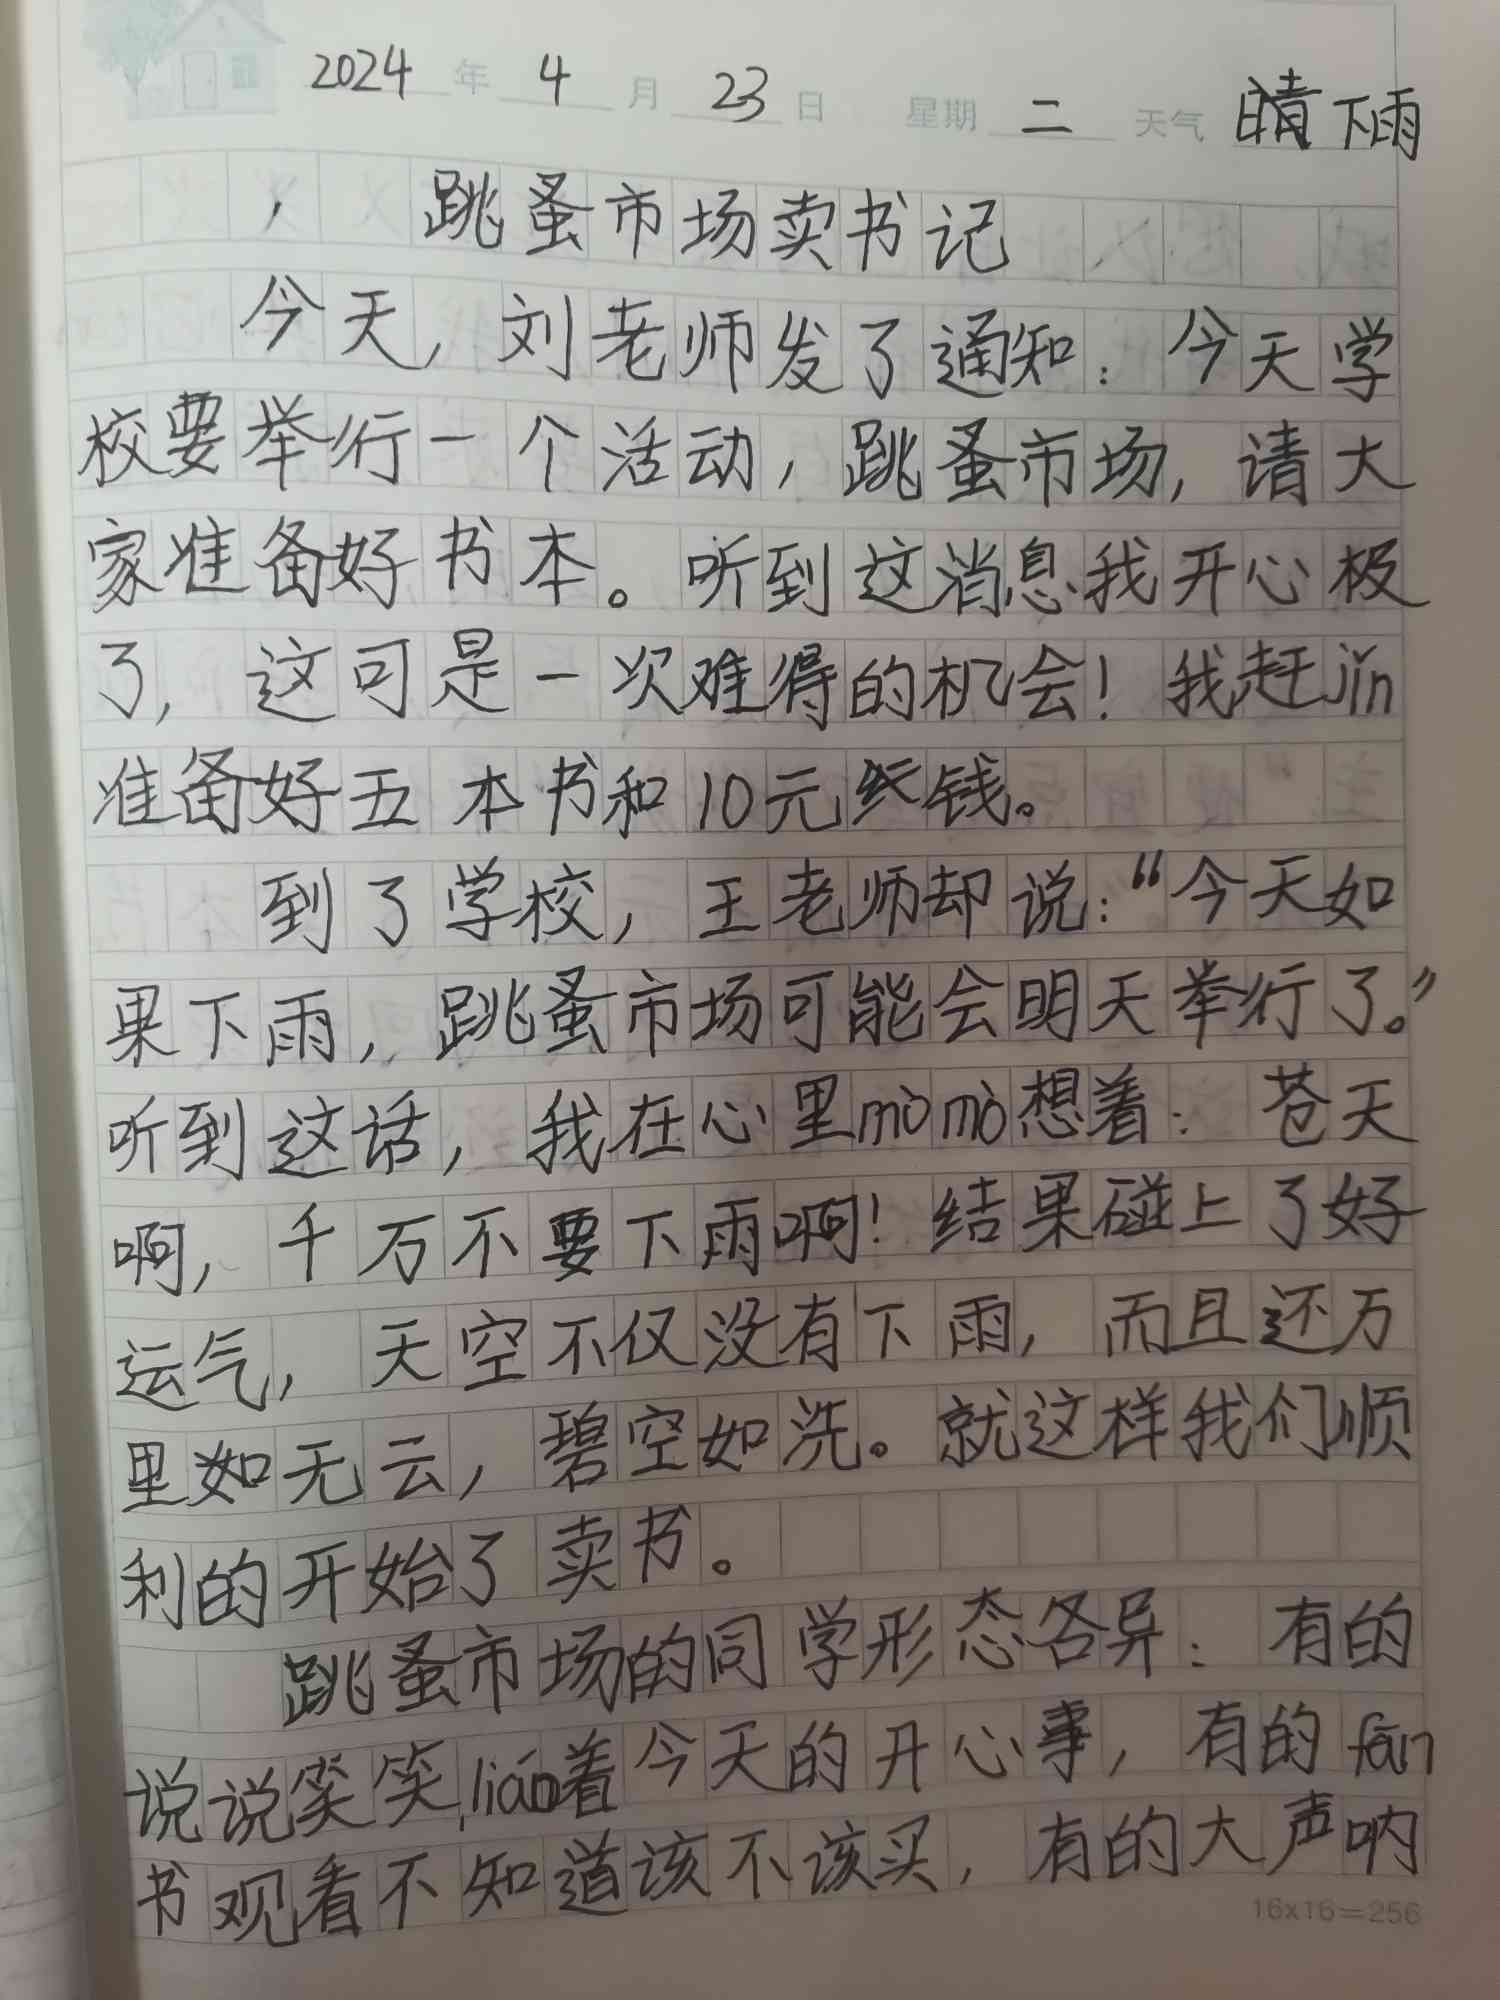 2024年4月23日 星期二 天气晴下雨
跳蚤市场卖书记
今天，刘老师发了通知：今天学
校要举行一个活动，跳蚤市场，请大
家准备好书本。听到这消息我开心极
了，这可是一次难得的机会！我赶jǐn
准备好五本书和10元钱。
到了学校，王老师却说：“今天如
果下雨，跳蚤市场可能会明天举行了。”
听到这话，我在心里mòmò想着：苍天
啊，千万不要下雨啊！结果碰上了好
运气，天空不仅没有下雨，而且还万
里如无云，碧空如洗。就这样我们顺
利的开始了卖书。
跳蚤市场的同学形态各异：有的
说说笑笑，liáo着今天的开心事，有的fān
书观看不知道该不该买，有的大声呐
16x16=256